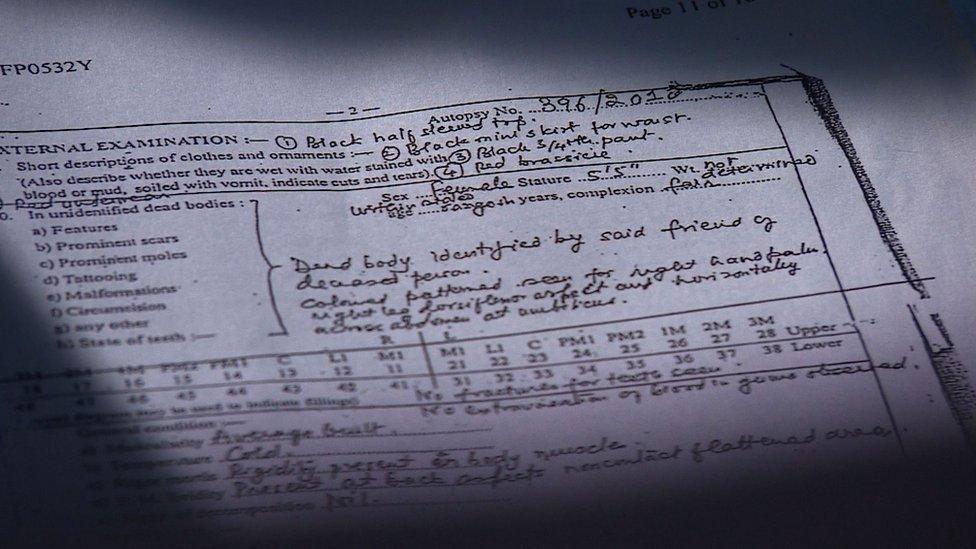 Page 11 of
FP0532Y
— 2 —
Autopsy No. 896/2010
EXTERNAL EXAMINATION :— ① Black half sleeved top.
Short descriptions of clothes and ornaments :— ② Black mini skirt for waist.
(Also describe whether they are wet with water suined with ③ Black 3/4th pant.
blood or mud, soiled with vomit, indicate cuts and tears). ④ Red brassiere.
Sex Female Stature 5'5" Wt. not determined
years, complexion fair
In unidentified dead bodies :
a) Features
b) Prominent scars
c) Prominent moles
d) Tattooing
e) Malformations
f) Circumcision
g) any other
h) State of teeth :—
Dead body identified by said friend of
deceased person.
Coloured patterned seen for right hand palm,
right leg dorsiflexor aspect and horizontally
across abdomen at umbilicus.
R L
PM1 C L1 M1 M1 L1 C PM1 PM2 1M 2M 3M
16 15 14 13 12 11 21 22 23 24 25 26 27 28 Upper
46 45 44 43 42 41 31 32 33 34 35 36 37 38 Lower
No fractures for teeth seen.
No extravasation of blood in gums observed.
General condition :—
Average built.
Temperature Cold.
Rigidity present on body muscle.
Present at back aspects noncontact flattened area
Nil.